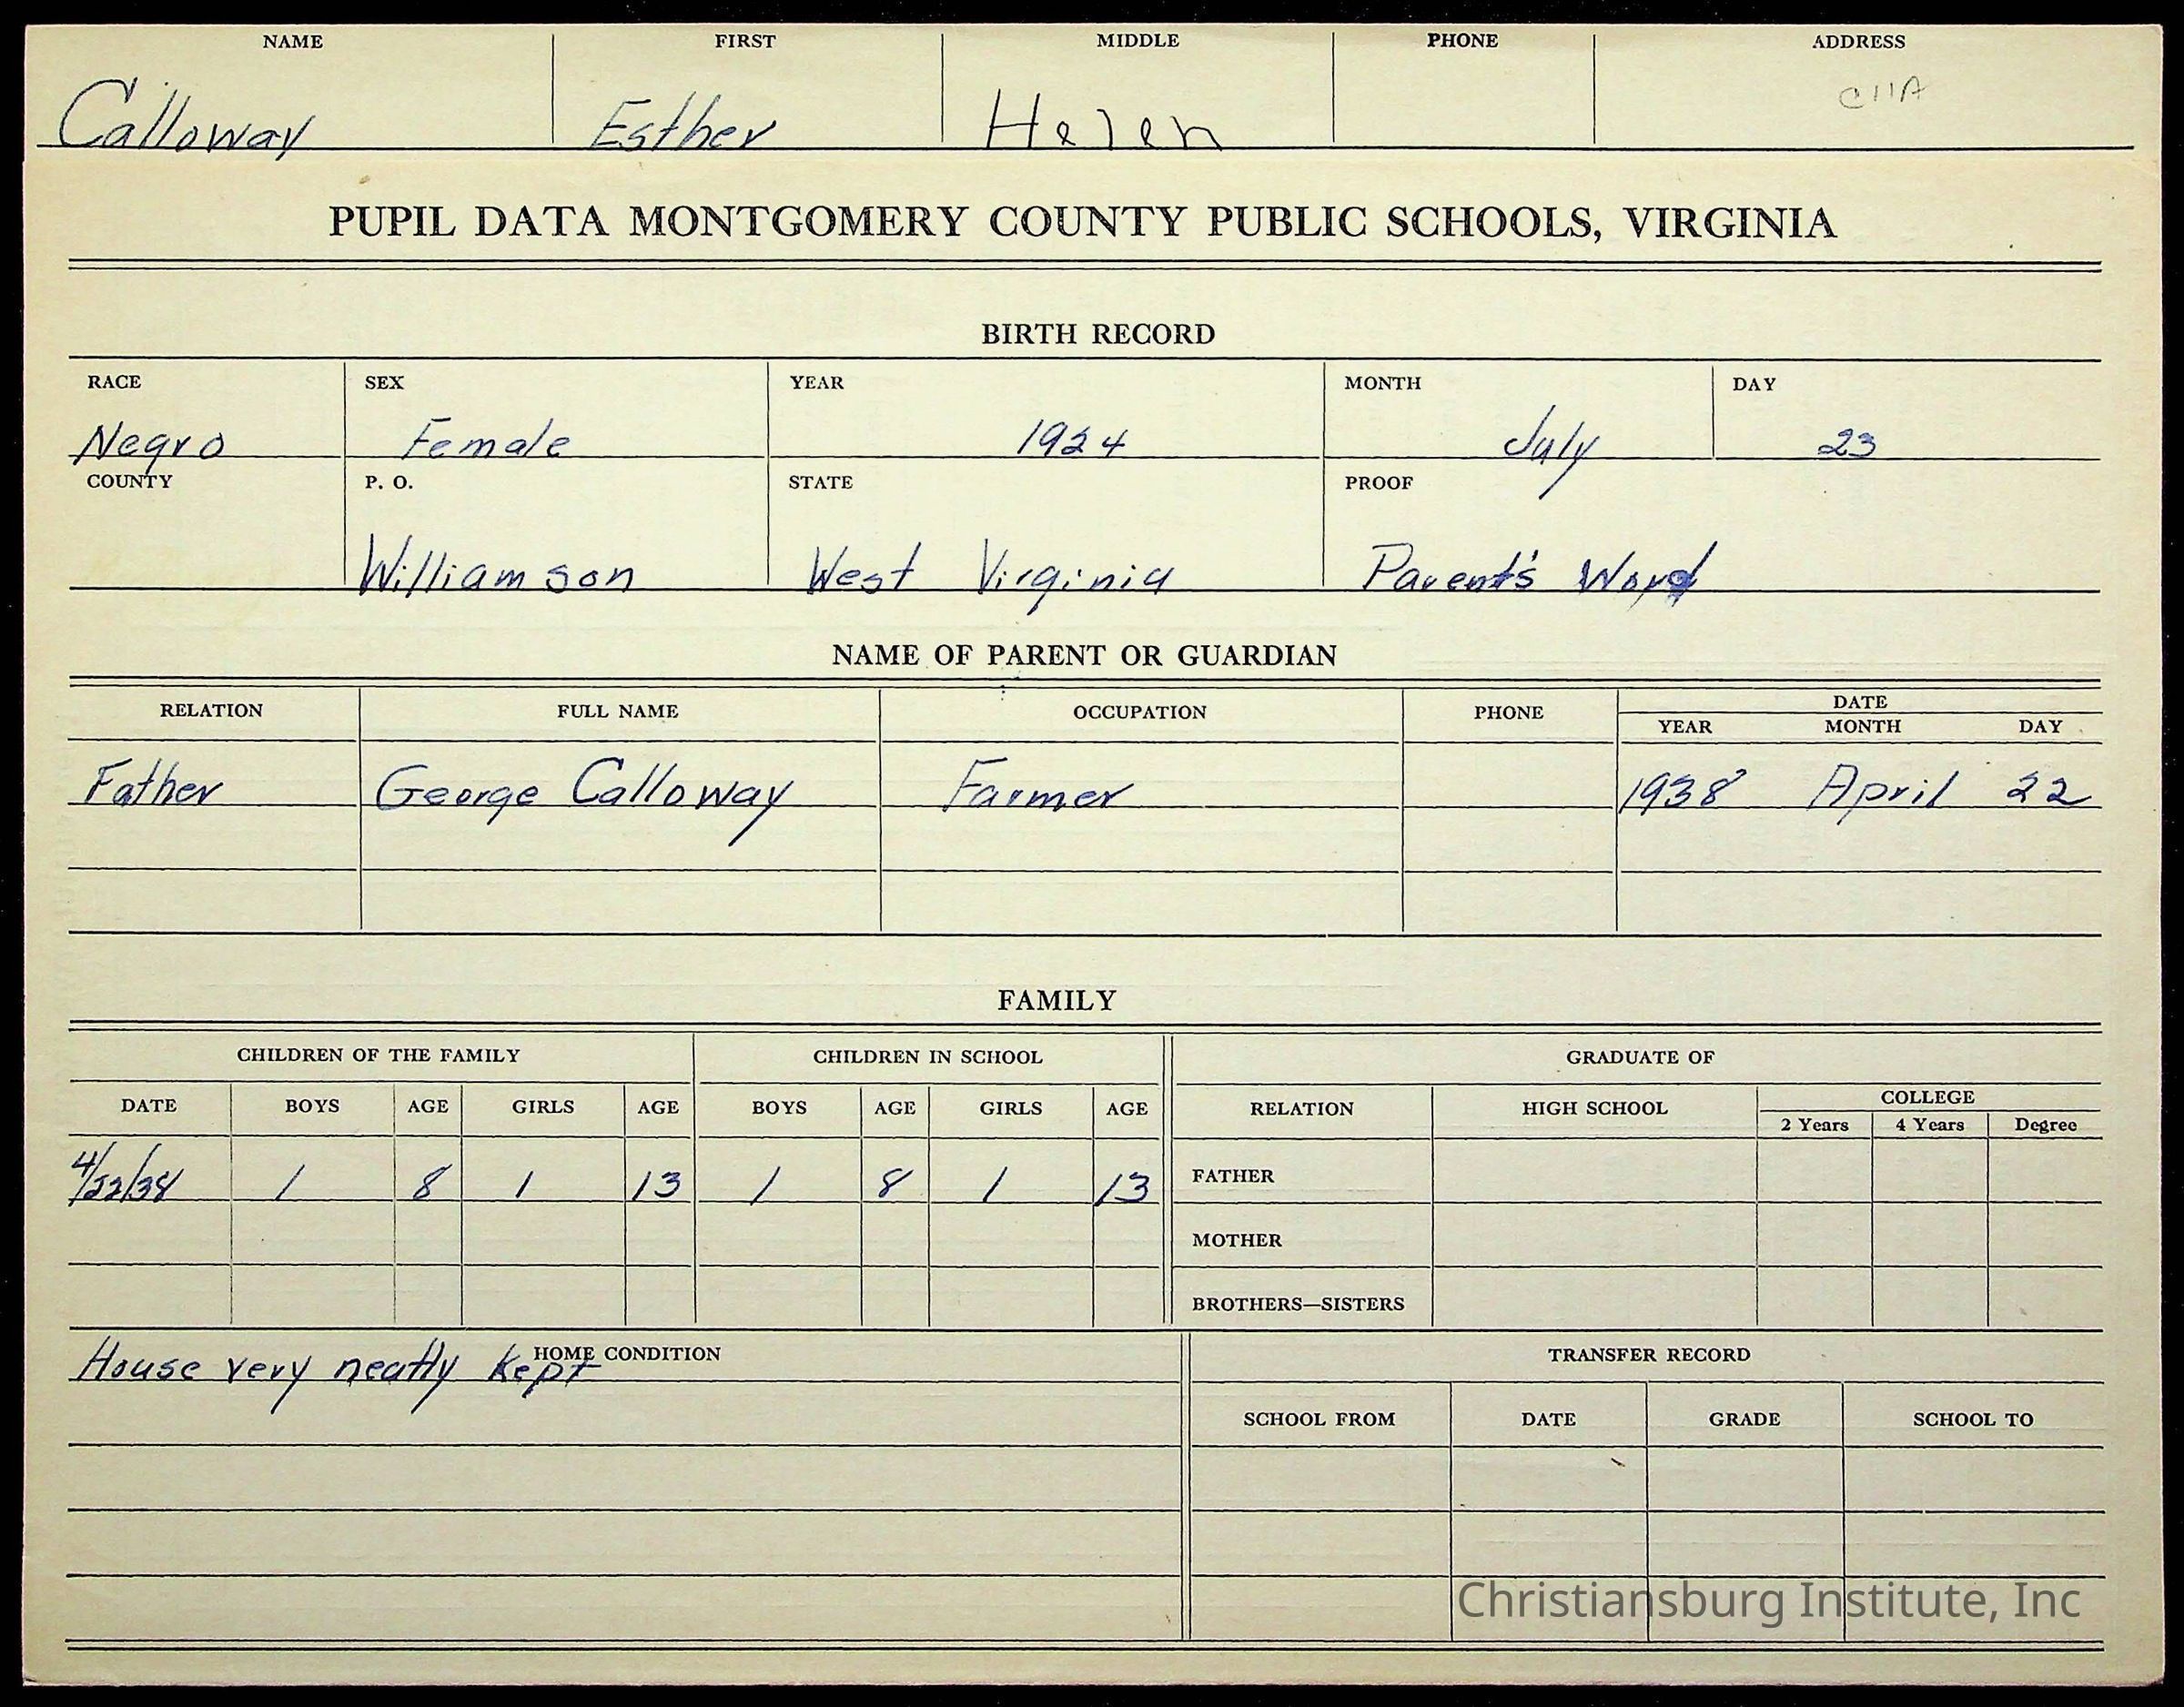 NAME FIRST MIDDLE PHONE ADDRESS
C11A
Calloway Esther Helen
PUPIL DATA MONTGOMERY COUNTY PUBLIC SCHOOLS, VIRGINIA
BIRTH RECORD
RACE SEX YEAR MONTH DAY
Negro Female 1924 July 23
COUNTY P. O. STATE PROOF
Williamson West Virginia Parent's Word
NAME OF PARENT OR GUARDIAN
RELATION FULL NAME OCCUPATION PHONE DATE
YEAR MONTH DAY
Father George Calloway Farmer 1938 April 22
FAMILY
CHILDREN OF THE FAMILY CHILDREN IN SCHOOL GRADUATE OF
DATE BOYS AGE GIRLS AGE BOYS AGE GIRLS AGE RELATION HIGH SCHOOL COLLEGE
2 Years 4 Years Degree
4/22/38 1 8 1 13 1 8 1 13 FATHER
MOTHER
BROTHERS—SISTERS
HOME CONDITION TRANSFER RECORD
House very neatly kept
SCHOOL FROM DATE GRADE SCHOOL TO
Christiansburg Institute, Inc